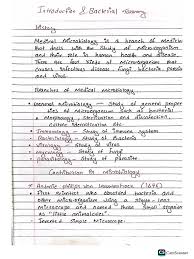 Introduction & Bacterial Taxonomy
History
Medical Microbiology is a branch of Medicine
that deals with the study of Microorganism
and their role in human health and disease.
There are four types of Microorganism that
causes infectious disease, fungi, bacteria, parasite
and virus.
Branches of Medical Microbiology
General microbiology - Study of general
of microorganism such as bacterial
Morphology, sterilization and disinfection,
culture identification, etc.
Immunology - Study of immune system
Bacteriology - Study of Bacteria
Virology - Study of virus
mycology - Study of fungi
parasitology - Study of parasites
Contribution in microbiology
Antonie philips van Leeuwenhoek (1676)
First scientist who observed bacteria and
other microorganism using a single-lens
microscope and named those small organism
as "little animalcules"
Invented Simple Microscope.
CamScanner